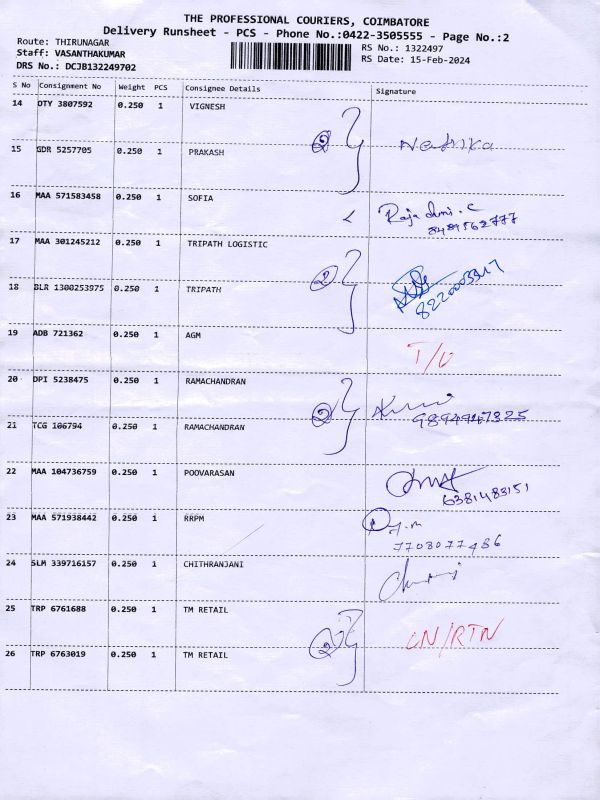 THE PROFESSIONAL COURIERS, COIMBATORE
Delivery Runsheet - PCS - Phone No.:0422-3505555 - Page No.:2
Route: THIRUNAGAR
RS No.: 1322497
Staff: VASANTHAKUMAR
RS Date: 15-Feb-2024
DRS No.: DCJB132249702
S No Consignment No Weight PCS Consignee Details Signature
14 OTY 3807592 0.250 1 VIGNESH
2
15 GDR 5257705 0.250 1 PRAKASH
16 MAA 571583458 0.250 1 SOFIA
17 MAA 301245212 0.250 1 TRIPATH LOGISTIC
2
18 BLR 1300253975 0.250 1 TRIPATH
19 ADB 721362 0.250 1 AGM T/U
20 DPI 5238475 0.250 1 RAMACHANDRAN
2 9894947325
21 TCG 106794 0.250 1 RAMACHANDRAN
22 MAA 104736759 0.250 1 POOVARASAN
6381483151
23 MAA 571938442 0.250 1 RRPM
7708077486
24 SLM 339716157 0.250 1 CHITHRANJANI
25 TRP 6761688 0.250 1 TM RETAIL
2 CN/RTN
26 TRP 6763019 0.250 1 TM RETAIL